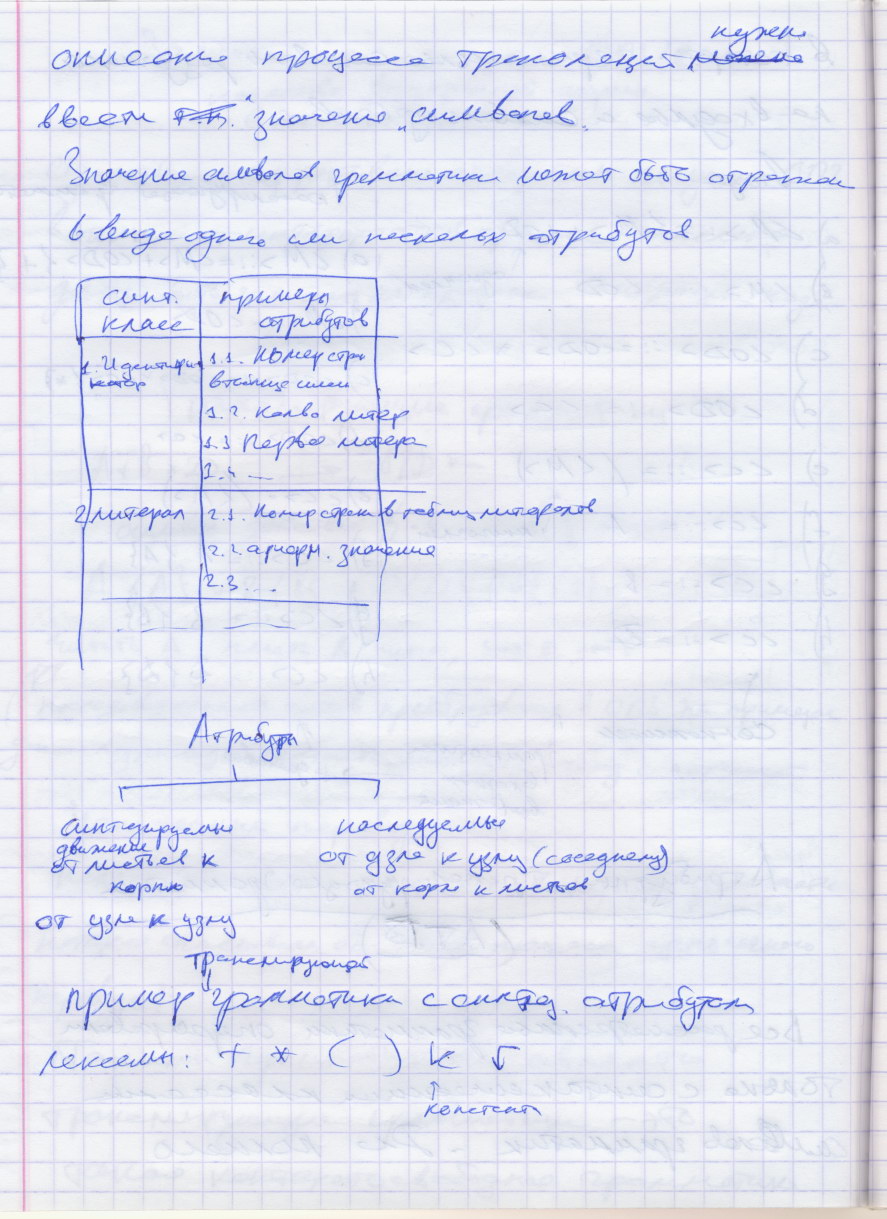 описание процесса трансляций нужно
ввести значение "символов"
Значение символов грамматики может быть отражен
в виде одного или нескольк атрибутов
синт. класс
примеры атрибутов
1. Идентифи катор
1.1. Номер стро
в таблице имен
1.2. Кол-во литер
1.3 Первая литера
1.4 ....
2 литерал
2.1. Номер строки в таблиц литералов
2.2. арифм. значение
2.3 ....
Атрибуты
синтезируемые
движение
от листьев к
корню
от узла к узлу
наследуемые
от узла к узлу (соседнему)
от корня к листьев
транслирующей
пример грамматики с синтез. атрибутами
лексемы: + * ( ) k ↓
↑
константа